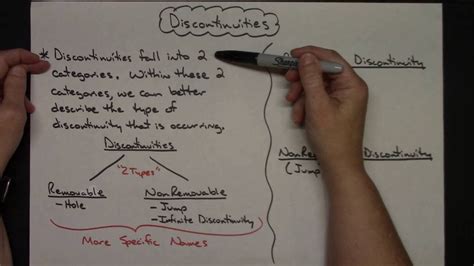 Discontinuities
* Discontinuities fall into 2
categories. Within these 2
categories, we can better
describe the type of
discontinuity that is occurring.
Discontinuities
"2 Types"
Removable
- Hole
NonRemovable
- Jump
- Infinite Discontinuity
More Specific Names
Sharpie
Discontinuity
Discontinuity
(Jump